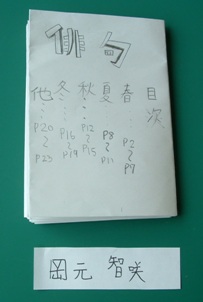 俳句
目次
春……P2〜P7
夏……P8〜P11
秋……P12〜P15
冬……P16〜P19
他……P20〜P23
岡元 智咲